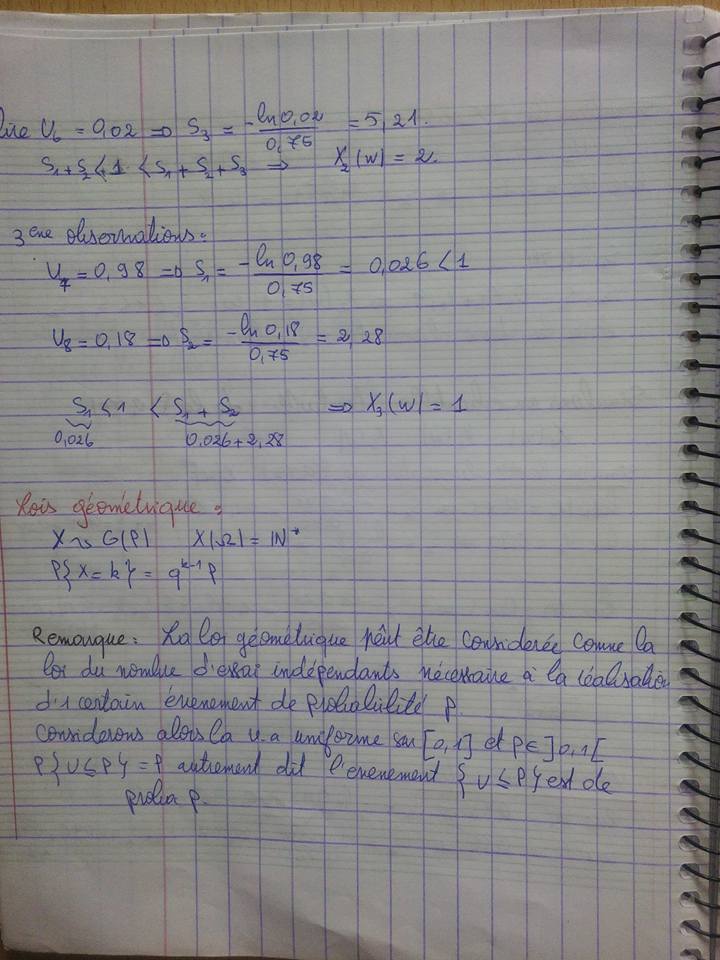 U₆ = 0,02 ⇒ S₃ = -ln 0,02 / 0,75 = 5,21.
S₁+S₂ < 1 < S₁+S₂+S₃ ⇒ X₂(w) = 2.
3ᵉᵐᵉ observations:
U₇ = 0,98 ⇒ S₁ = -ln 0,98 / 0,75 = 0,026 < 1
U₈ = 0,18 ⇒ S₂ = -ln 0,18 / 0,75 = 2,28
S₁ < 1 < S₁ + S₂ ⇒ X₃(w) = 1
0,026 0,026+2,28
Lois géométrique:
X ~ G(P) X(Ω) = ℕ*
P{X=k} = q^(k-1) p
Remarque: La loi géométrique peût être considerée comme la
loi du nombre d'essai indépendants nécessaire à la réalisation
d'1 certain évenement de probabilité p.
Considerons alors la v.a uniforme sur [0,1] et p∈]0,1[
P{U≤P} = P autrement dit l'evenement {U≤P} est de
proba p.